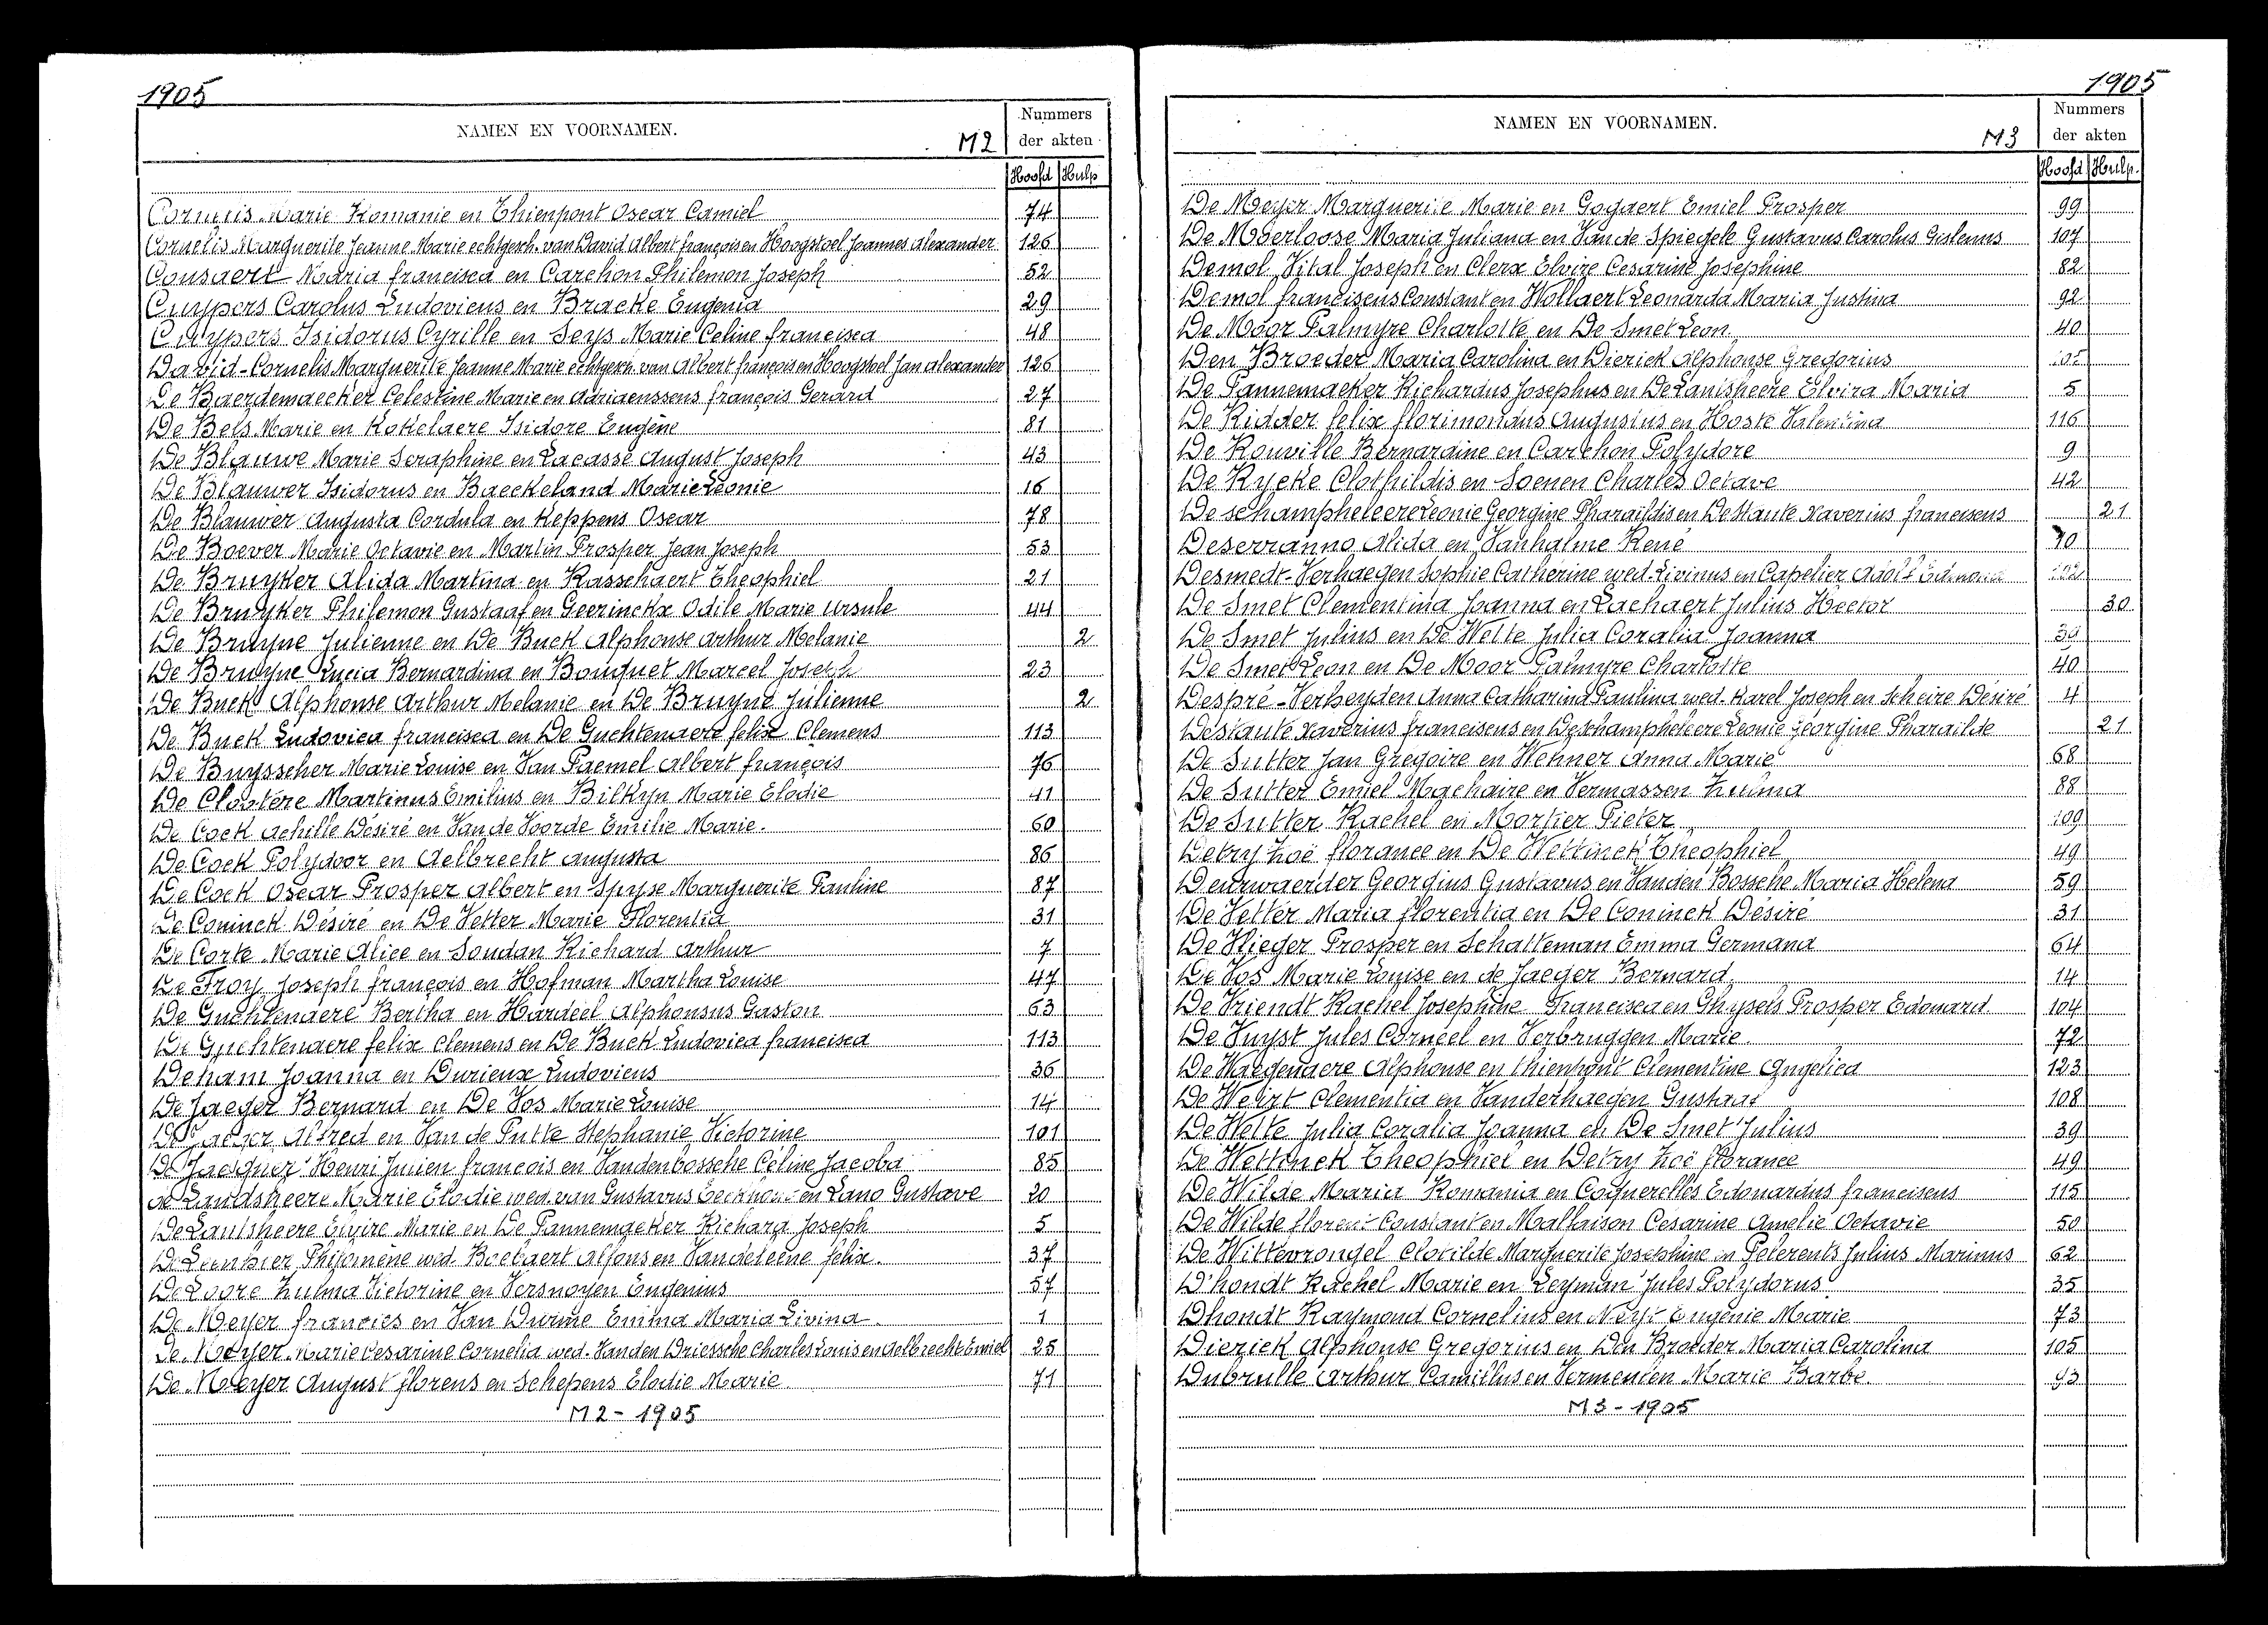 1905
NAMEN EN VOORNAMEN. M2
Nummers
der akten
Hoofd Hulp
Cornelis Marie Romanie en Thienpont Oscar Camiel 74
Cornelis Marguerite Jeanne Marie echtgesch. van David Albert françois en Hoogstoel Joannes Alexander 126
Cousaert Maria francisca en Carchon Philemon Joseph 52
Cuypers Carolus Ludovicus en Bracke Eugenia 29
Cuypers Isidorus Cyrille en Seys Marie Celine francisca 48
David-Cornelis Marguerite Jeanne Marie echtgesch. van Albert françois en Hoogstoel Jan Alexander 126
De Baerdemaecker Celestine Marie en Adriaenssens françois Gerard 27
De Bels Marie en Kokelaere Isidore Eugène 81
De Blauwe Marie Seraphine en Lacasse August Joseph 43
De Blauwer Isidorus en Baeckeland Marie Leonie 16
De Blauwer Augusta Cordula en Keppens Oscar 78
De Boever Marie Octavie en Martin Prosper Jean Joseph 53
De Bruyker Alida Martina en Rasschaert Theophiel 21
De Bruyker Philemon Gustaaf en Geerinckx Odile Marie Ursule 44
De Bruyne Julienne en De Buck Alphonse Arthur Melanie 2
De Bruyne Lucia Bernardina en Bouquet Marcel Joseph 23
De Buck Alphonse Arthur Melanie en De Bruyne Julienne 2
De Buck Ludovica francisca en De Guchtenaere felix Clemens 113
De Buysscher Marie Louise en Van Paemel Albert françois 76
De Cloetére Martinus Emilius en Bilkyn Marie Elodie 41
De Cock Achille Désiré en Van de Voorde Emilie Marie. 60
De Cock Polydoor en Aelbrecht Augusta 86
De Cock Oscar Prosper Albert en Spyse Marguerite Pauline 87
De Coninck Désiré en De Vetter Marie Florentia 31
De Corte Marie Alice en Soudan Richard Arthur 7
De Froy Joseph françois en Hofman Martha Louise 47
De Guchtenaere Bertha en Hardeel Alphonsus Gaston 63
De Guchtenaere felix Clemens en De Buck Ludovica francisca 113
Deham Joanna en Durieux Ludovicus 36
De Jaeger Bernard en De Vos Marie Louise 14
De Jaeger Alfred en Van de Putte Stephanie Victorine 101
De Jaeguer Henri Julien françois en Vandenbossche Céline Jacoba 85
de Landsheere Marie Elodie wed. van Gustavus Eeckhout en Lano Gustave 20
De Lantsheere Elvire Marie en De Pannemaeker Richard Joseph 5
Philomène wed. Boelaert Alfons en Vandeleene felix. 37
De Loore Zulma Victorine en Versnoyen Eugenius 57
De Meyer francies en Van Durme Emma Maria Livina. 1
De Meyer Marie Cesarine Cornelia wed. Vanden Driessche Charles Louis en Aelbrecht Emiel 25
De Meyer August florens en Schepens Elodie Marie 71
M2 - 1905
1905
NAMEN EN VOORNAMEN. M3
Nummers
der akten
Hoofd Hulp.
De Meyer Marguerite Marie en Gogaert Emiel Prosper 99
De Moerloose Maria Juliana en Van de Spiegele Gustavus Carolus Gislenus 107
Demol Vital Joseph en Clerx Elvire Cesarine Josephine 82
Demol franciscus Constant en Wollaert Leonarda Maria Justina 92
De Moor Palmyre Charlotte en De Smet Leon 40
Den Broeder Maria Carolina en Dierick Alphonse Gregorius 105
De Pannemaeker Richardus Josephus en De Lantsheere Elvira Maria 5
De Ridder felix florimondus Augustus en Hoste Valentina 116
De Rouville Bernardine en Carchon Polydore 9
De Rycke Clothildis en Soenen Charles Octave 42
De schampheleere Leonie Georgine Pharaildis en De Staute Xaverius franciscus 21
Deserranno Alida en Vanhalme René 70
Desmedt-Verhaegen Sophie Catherine wed. Livinus en Capelier Adolf Edmond
De Smet Clementina Joanna en Lachaert Julius Hector 30
De Smet Julius en De Wette Julia Coralia Joanna 39
De Smet Leon en De Moor Palmyre Charlotte 40
Despré-Verheyden Anna Catharina Paulina wed. Karel Joseph en Scheire Désiré 4
Destaute Xaverius franciscus en Deschampheleere Leonie Georgine Pharailde 21
De Sutter Jan Gregoire en Wehner Anna Marie 68
De Sutter Emiel Machaire en Vermassen Zulma 88
De Sutter Rachel en Mortier Pieter 109
Detry Zoë florance en De Wettinck Théophiel 49
Deurwaerder Georgius Gustavus en Vanden Bossche Maria Helena 59
De Vetter Maria florentia en De Coninck Désiré 31
De Vlieger Prosper en Schatteman Emma Germana 64
De Vos Marie Louise en de Jaeger Bernard 14
De Vriendt Rachel Josephine Francisca en Ghysels Prosper Edouard 104
De Vuyst Jules Corneel en Verbruggen Marie 72
De Waegenaere Alphonse en Thienpont Clementine Angelica 123
De Weirt Clementia en Vanderhaegen Gustaaf 108
De Wette Julia Coralia Joanna en De Smet Julius 39
De Wettinck Theophiel en Detry Zoë florance 49
De Wilde Maria Romania en Coquerelles Edouardus franciscus 115
De Wilde florent Constant en Mallaison Césarine Amelie Octavie 50
De Wittevrongel Clotilde Marguerite Josephine en Pelerents Julius Marinus 62
D'hondt Rachel Marie en Leyman Jules Polydorus 35
Dhondt Raymond Cornelius en Neyt Eugènie Marie 73
Dierick Alphonse Gregorius en Den Broeder Maria Carolina 105
Dubrulle Arthur Camillus en Vermeulen Marie Barbe. 93
M3 - 1905